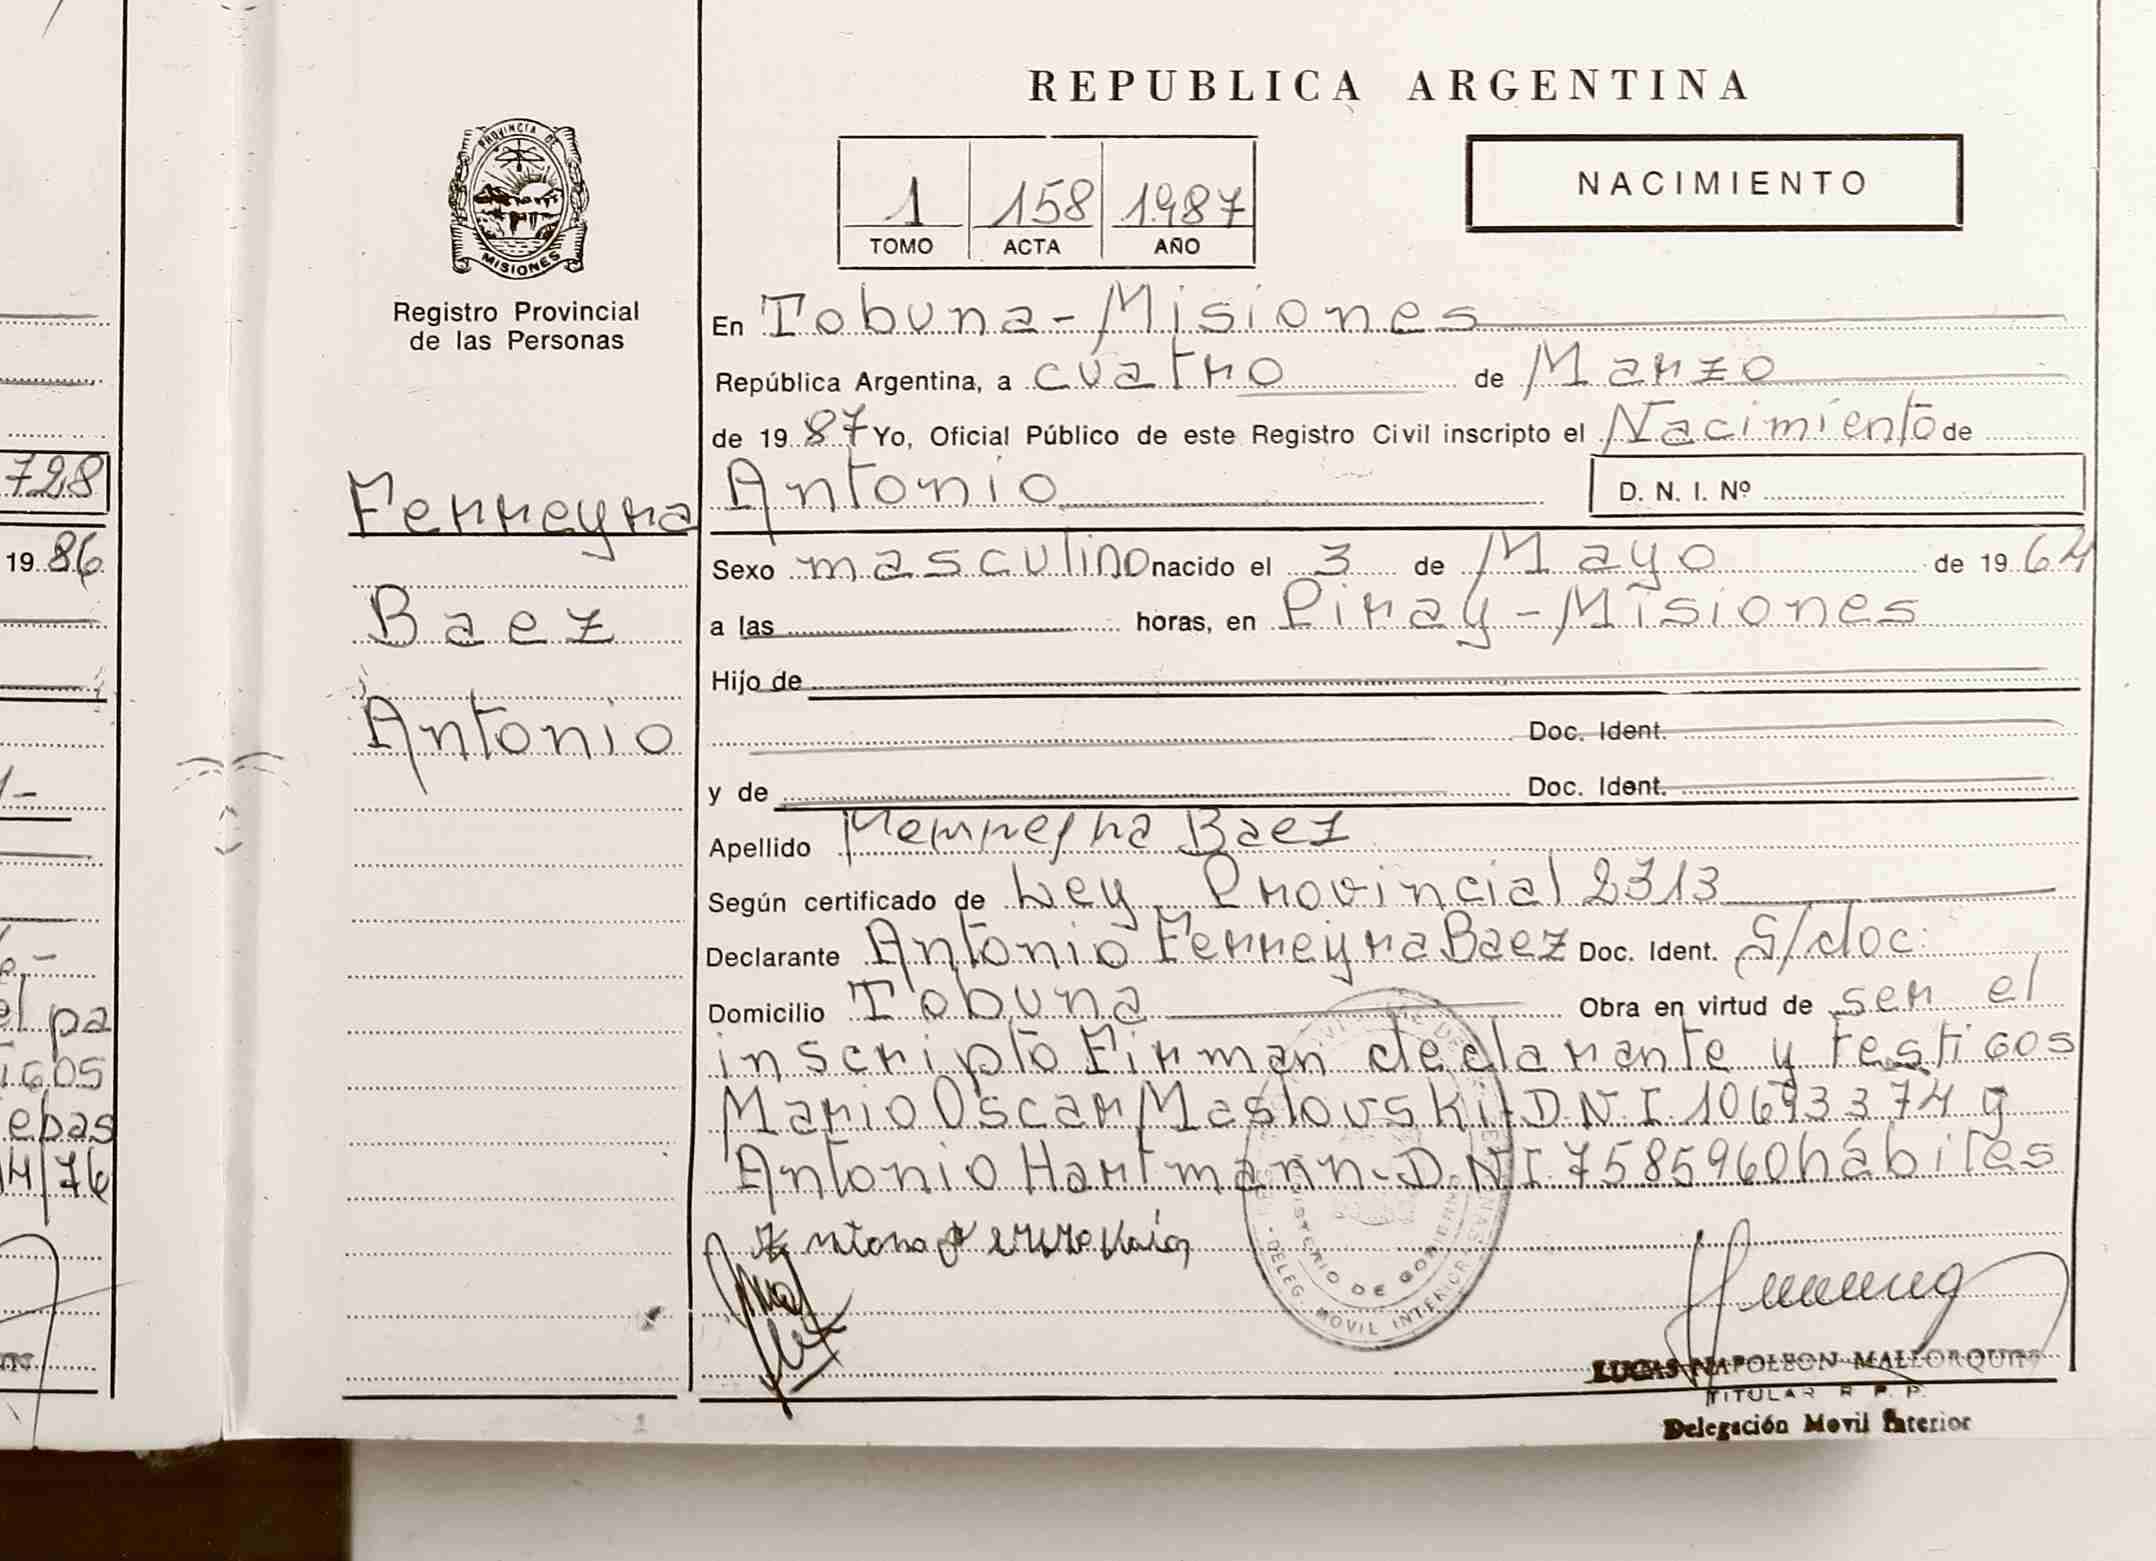 REPUBLICA ARGENTINA
PROVINCIA DE
MISIONES
Registro Provincial
de las Personas
1 158 1987
TOMO ACTA AÑO
NACIMIENTO
En Tobuna - Misiones
República Argentina, a cuatro de Marzo
de 1987 Yo, Oficial Público de este Registro Civil inscripto el Nacimiento de
Ferreyra
Baez
Antonio
Antonio
D. N. I. Nº
Sexo masculino nacido el 3 de Mayo de 1964
a las horas, en Piray - Misiones
Hijo de
Doc. Ident.
y de Doc. Ident.
Apellido Ferreyra Baez
Según certificado de Ley Provincial 2313
Declarante Antonio Ferreyra Baez Doc. Ident. S/doc.
Domicilio Tobuna Obra en virtud de ser el
inscripto Firman declarante y testigos
Mario Oscar Maslouski - D.N.I. 10693374 y
Antonio Hartmann - D.N.I. 7585960 hábiles
MINISTERIO DE GOBIERNO
DELEG. MOVIL INTERIOR
LUCAS NAPOLEON MALLORQUIN
TITULAR R. P. P.
Delegación Movil Interior
728
1986
el pa
igos
ebas
4/76